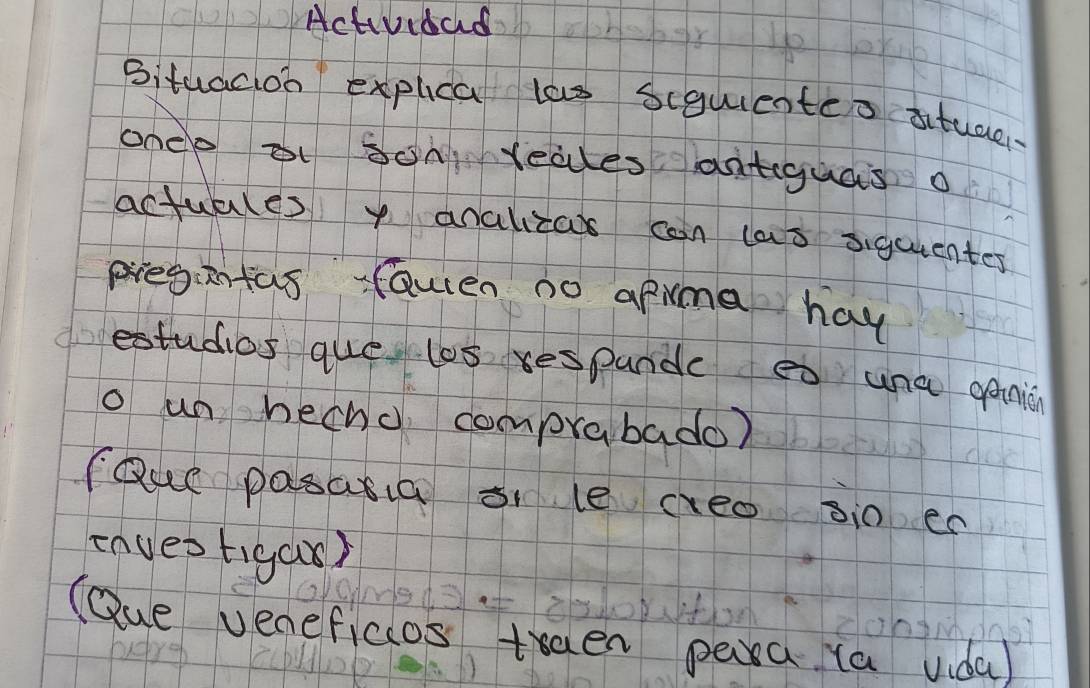 Actividad
Situación explica las siguientes situaci-
ones si son reales antiguas o
actuales y analizar con las siguientes
preguntas (Quien no afirma hay
estudios que los respande es una opinión
o un hecho comprabado)
(Que pasaria si le creo sin en
investigar)
(Que veneficios traen para la vida)